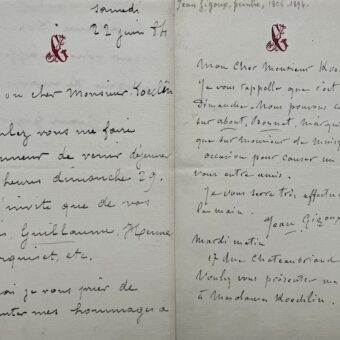 Samedi
22 juin 84
on cher Monsieur Koechlin
ulez vous me faire
onneur de venir déjeuner
heures dimanche 29.
'invite que de vos
s Guillaume, Henner
rquiset, etc.
oi je vous prier de
nter mes hommages a
Jean Gigoux, peintre, 1806-1894.
Mon cher Monsieur Koe
Je vous rappelle que c'est
Dimanche. Nous pouvons co
sur about, Bonnat, Marqui
que sur Monsieur de
occasion pour causer un
vous entre amis.
Je vous serre très affectue
la main.
Jean Gigoux
Mardi matin
17 rue Chateaubriand
Veuillez vous présenter
à Mesdames Koechlin.